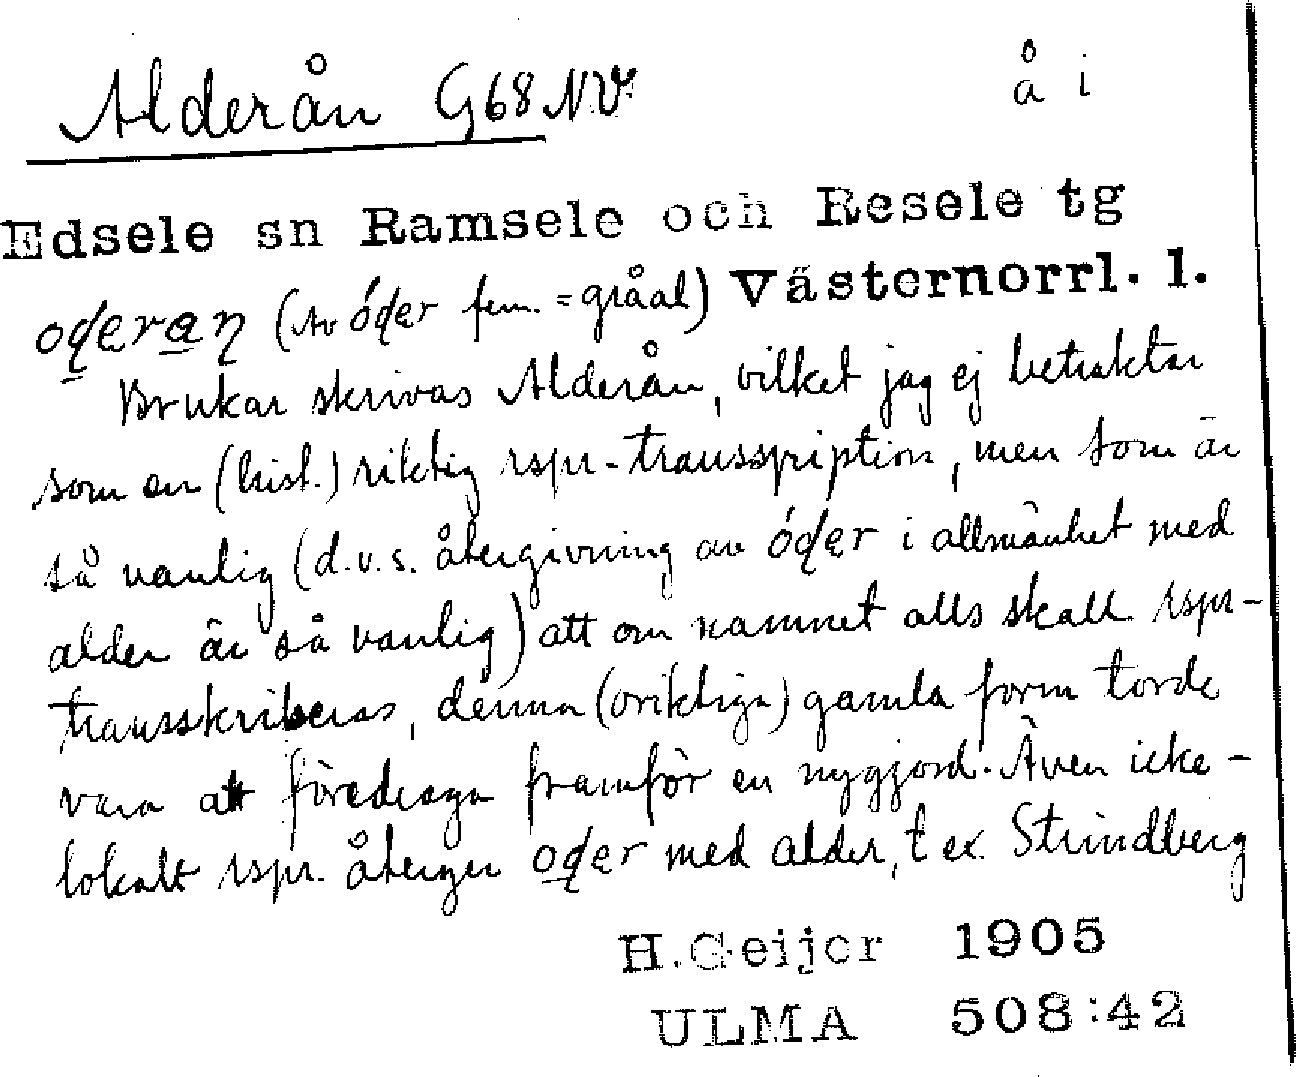 Alderån G68NV. å i
Edsele sn Ramsele och Resele tg
oɖeran (av óɖer fem. = gråal) Västernorrl. l.
Brukar skrivas Alderån, vilket jag ej betraktar
som en (hist.) riktig rspr-transspription, men som är
så vanlig (d.v.s. återgivning av óɖer i allmänhet med
alder är så vanlig) att om namnet alls skall rspr-
transskriberas, denna (oriktiga) gamla form torde
vara att föredraga framför en nygjord. Även icke-
lokalt rspr. återger oɖer med alder, t ex. Strindberg
H. Geijer 1905
ULMA 508:42